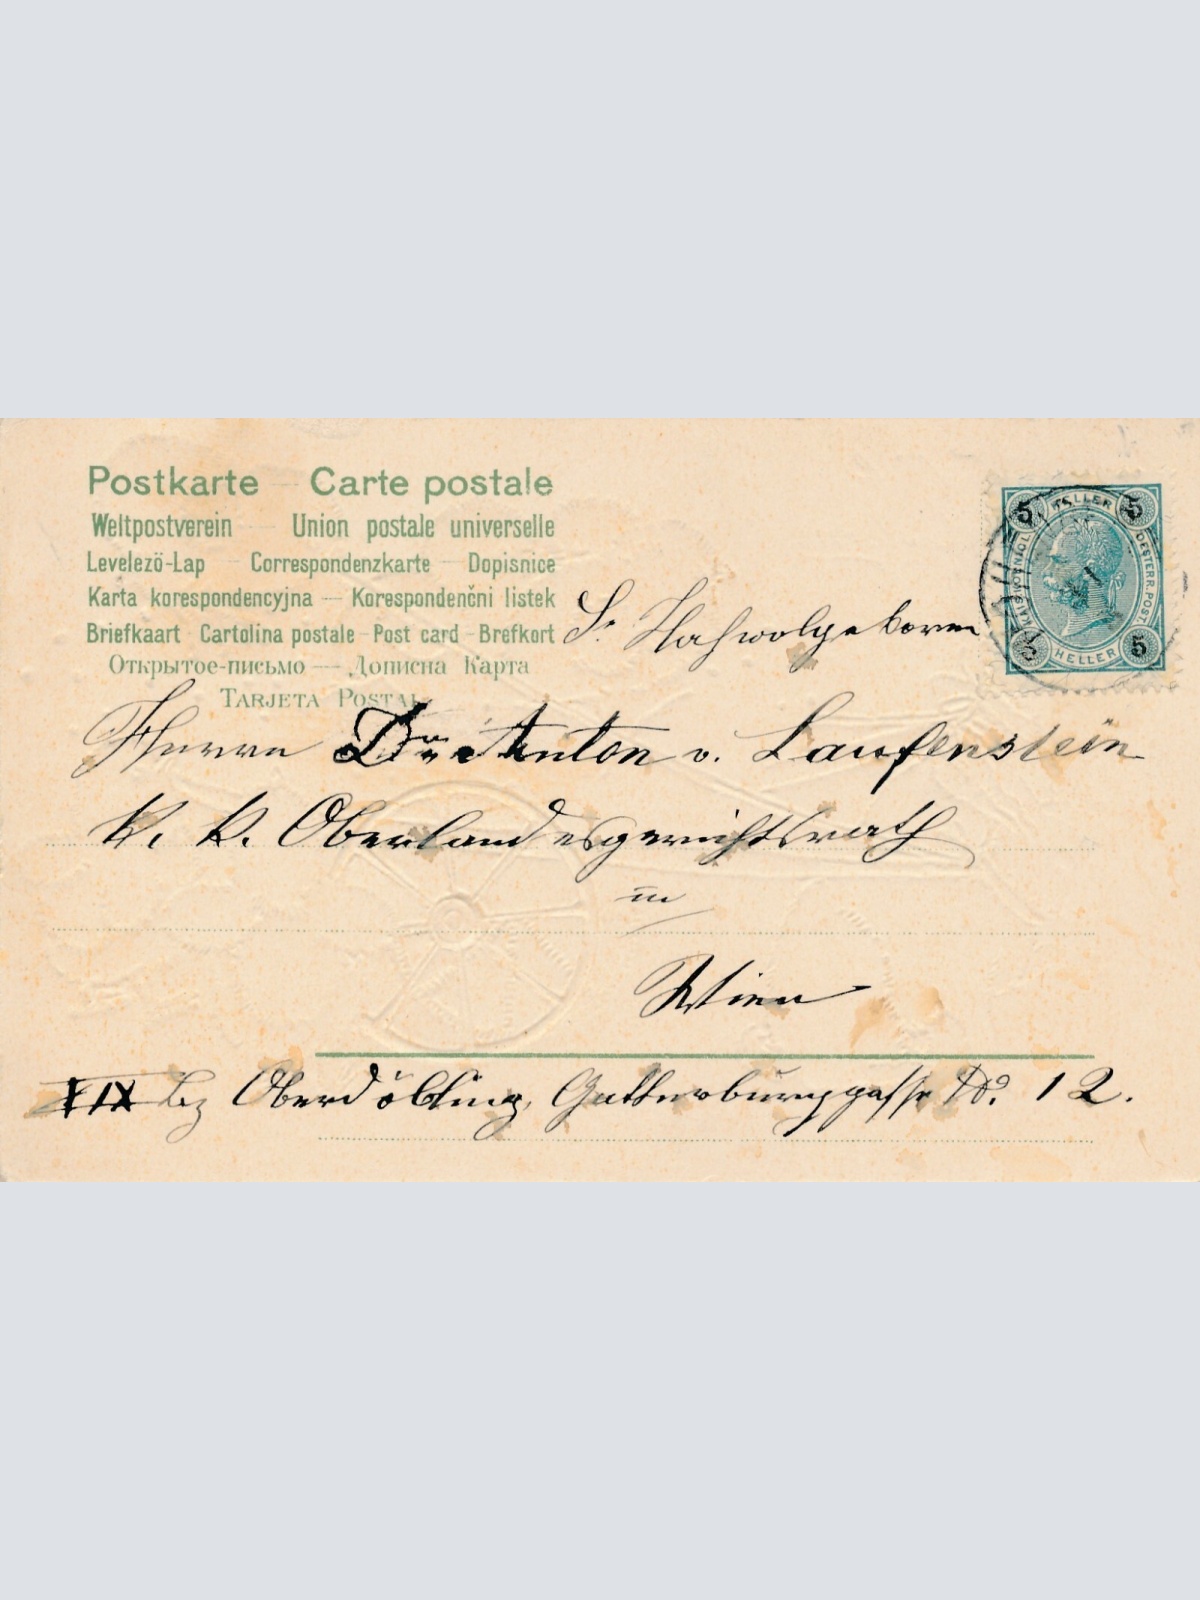 Postkarte — Carte postale
Weltpostverein — Union postale universelle
Levelező-Lap — Correspondenzkarte — Dopisnice
Karta korespondencyjna — Korespondenčni listek
Briefkaart - Cartolina postale - Post card - Brefkort
Открытое-письмо — Дописна Карта
Tarjeta Postal
5 HELLER 5
KAIS. KÖNIGL. OESTERR. POST
5 HELLER 5
Sr Hochwolgeboren
Herrn Dr. Anton v. Laufenstein
K. K. Oberlandesgerichtsrath
in
Wien
XIX Bz Oberdöbling, Gatterburggasse No. 12.